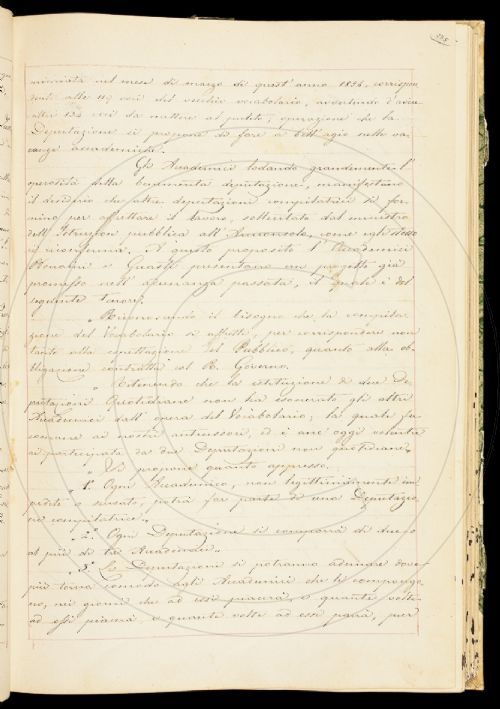 minciata nel mese di marzo di quest'anno 1856, corrispon
denti alle 119 voci del vecchio vocabolario, avendone d'avan
altri 134 voci da mettere al partito; operazione che la
Deputazione si propone di fare a bell'agio nelle va
canze accademiche.
Gli Accademici lodando grandemente l'
operosità della benemerita deputazione, manifestano
il desiderio che altre deputazioni compilatrici si for
mino per affrettare il lavoro, sollecitato dal ministro
dell'Istruzion pubblica all' come egli stesso
A questo proposito l' Accademici
e Guasti presentano un progetto già
promesso nell'adunanza passata, il quale è del
seguente tenore:
" Riconoscendo il bisogno che la compila
zione del Vocabolario si affretti, per corrispondere non
tanto alla espettazione del Pubblico, quanto alla ob
bligazione contratta col R. Governo.
" Ritenendo che la istituzione di due De
putazioni Quotidiane non ha esonerato gli altri
Accademici dall'opera del Vocabolario; la quale fu
comune ai nostri antecessori, ed è anc'oggi volentieri
partecipata da due Deputazioni non quotidiane,
" Si propone quanto appresso.
" 1° Ogni Accademico, non legittimamente im
pedito o scusato, potrà far parte di una Deputazio
ne compilatrice.
" 2° Ogni Deputazione si comporrà di due o
al più di tre Accademici.
" 3° Le Deputazioni si potranno adunare dove
più torna comodo agli Accademici che le compongo
no, nei giorni che ad essi piacerà, e quante volte
ad essi piacerà, e quante volte ad essi parrà, pur